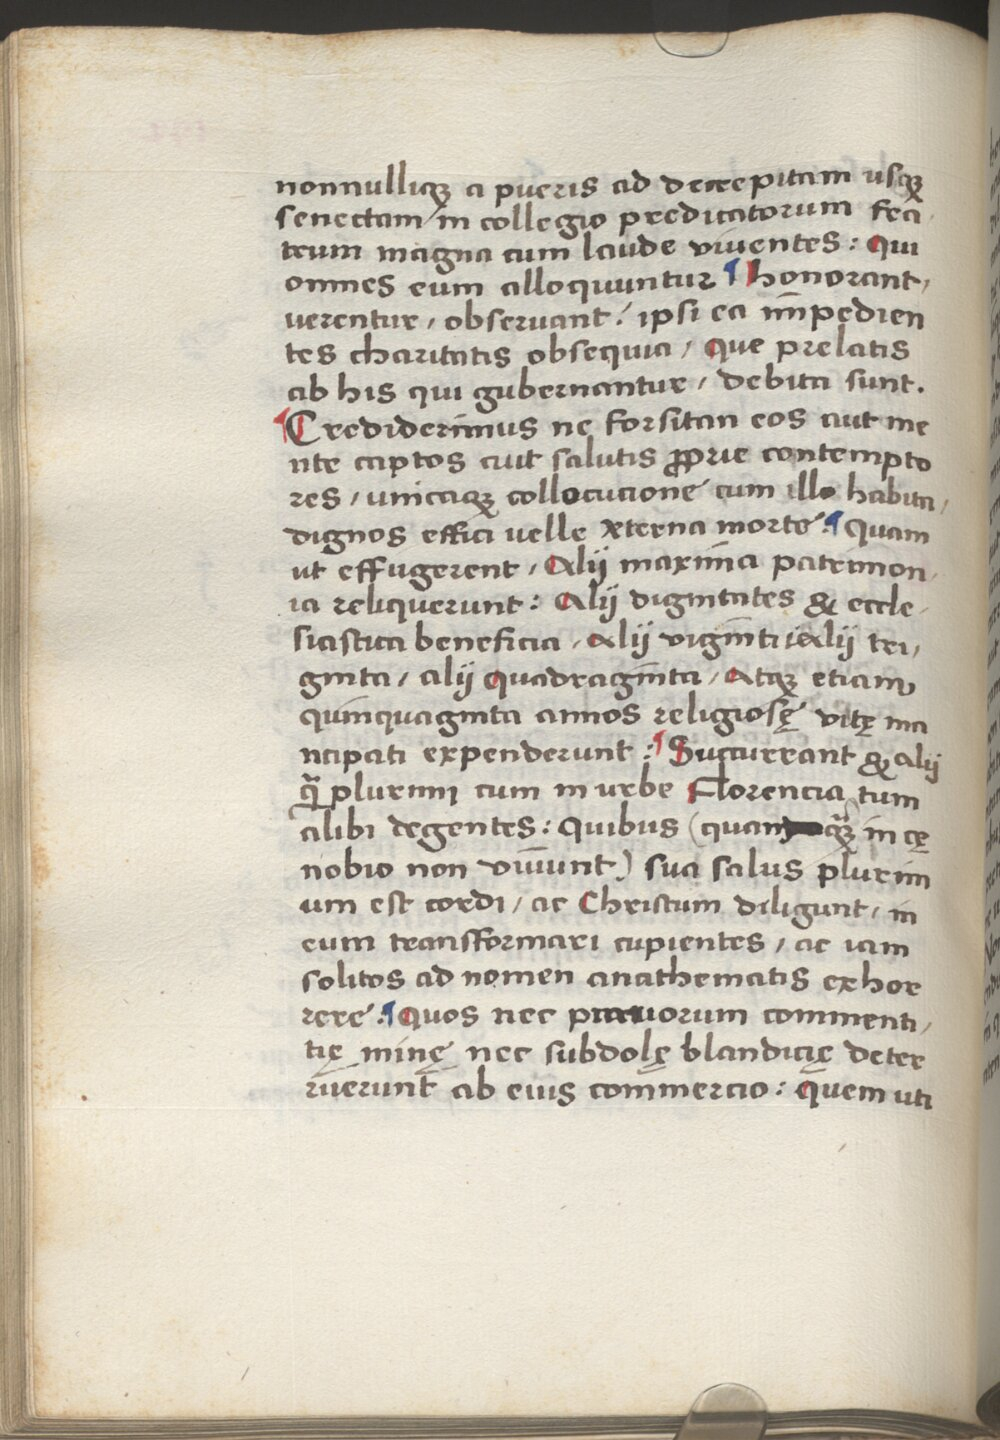 nonnulliqꝫ a pueris ad decrepitam usqꝫ
senectam in collegio predicatorum fra,
trum magna cum laude viventes: Qui
omnes eum alloquuntur ¶ honorant,
verentur, observant: ipsi ea īmpedien
tes charitatis obsequia, Que prelatis
ab his qui gubernantur, debita sunt.
¶ Crediderimus ne forsitan eos aut me
nte captos aut salutis ꝓprie contempto
res, unicaqꝫ collocucione cum illo habita,
dignos effici velle æterna morte: ¶ Quam
ut effugerent, Alij maxima patrimon,
ia reliquerunt: Alij dignitates & eccle,
siastica beneficia, alij viginti alij tri,
ginta, alij Quadraginta, Atqꝫ etiam
quinquaginta annos religiosę vitę ma
ncipati expenderunt: ¶ Succurrant & alij
qꝫ̄ plurimi tum in urbe Florencia, tum
alibi degentes: Quibus (quamqꝫ̄ in cę
nobio non vivunt) sua salus plurim
um est cordi, ac Christum diligunt, in
eum transformari cupientes, ac iam
solitos ad nomen anathematis exhor
rere: ¶ Quos nec pravorum commenti,
tię minę nec subdolę blandicię deter
ruerunt ab eius commercio: Quem uti